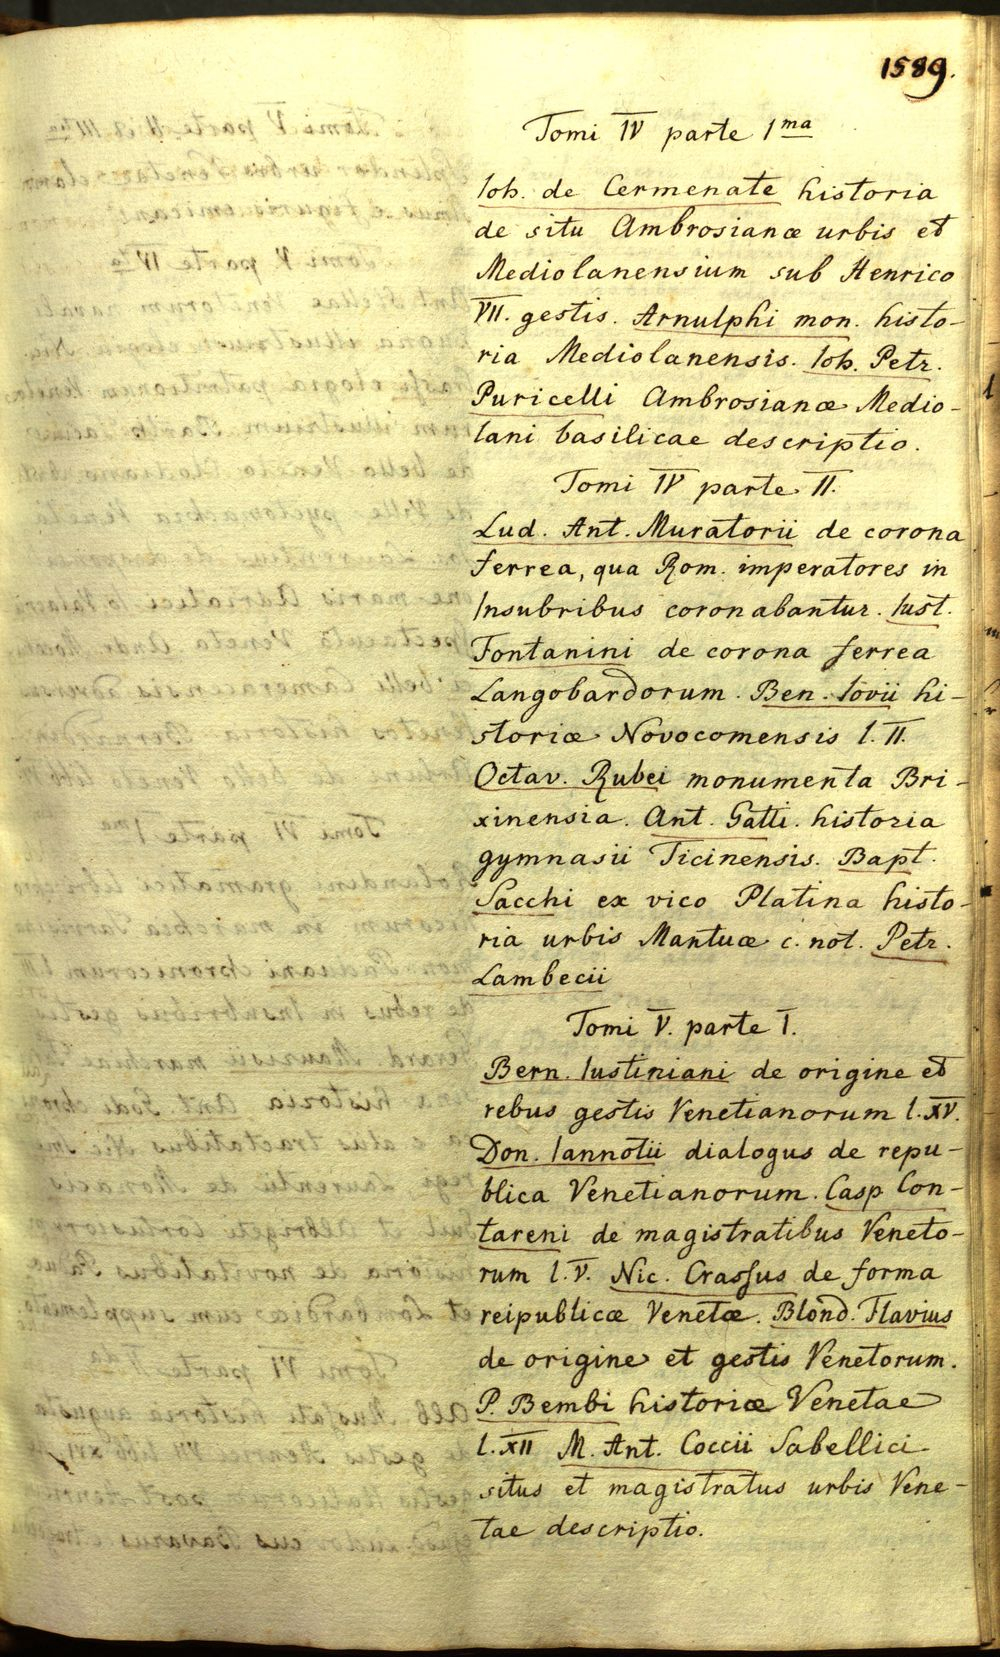 1589.
Tomi IV parte 1ma
Ioh. de Cermenate historia
de situ Ambrosianæ urbis et
Mediolanensium sub Henrico
VII. gestis. Arnulphi mon. histo-
ria Mediolanensis. Ioh. Petr.
Puricelli Ambrosianæ Medio-
lani basilicae descriptio.
Tomi IV parte II.
Lud. Ant. Muratorii de corona
ferrea, qua Rom. imperatores in
Insubribus coronabantur. Iust.
Fontanini de corona ferrea
Langobardorum. Ben. Iovii hi-
storiæ Novocomensis l. II.
Octav. Rubei monumenta Bri-
xinensia. Ant. Gatti. historia
gymnasii Ticinensis. Bapt.
Sacchi ex vico Platina histo-
ria urbis Mantuæ c. not. Petr.
Lambecii
Tomi V. parte I.
Bern. Iustiniani de origine et
rebus gestis Venetianorum l. XV.
Don. Iannotii dialogus de repu-
blica Venetianorum. Casp Con-
tareni de magistratibus Veneto-
rum l. V. Nic. Crassus de forma
reipublicæ Venetæ. Blond. Flavius
de origine et gestis Venetorum.
P. Bembi historiæ Venetae
l. XII M. Ant. Coccii Sabellici
situs et magistratus urbis Vene-
tae descriptio.